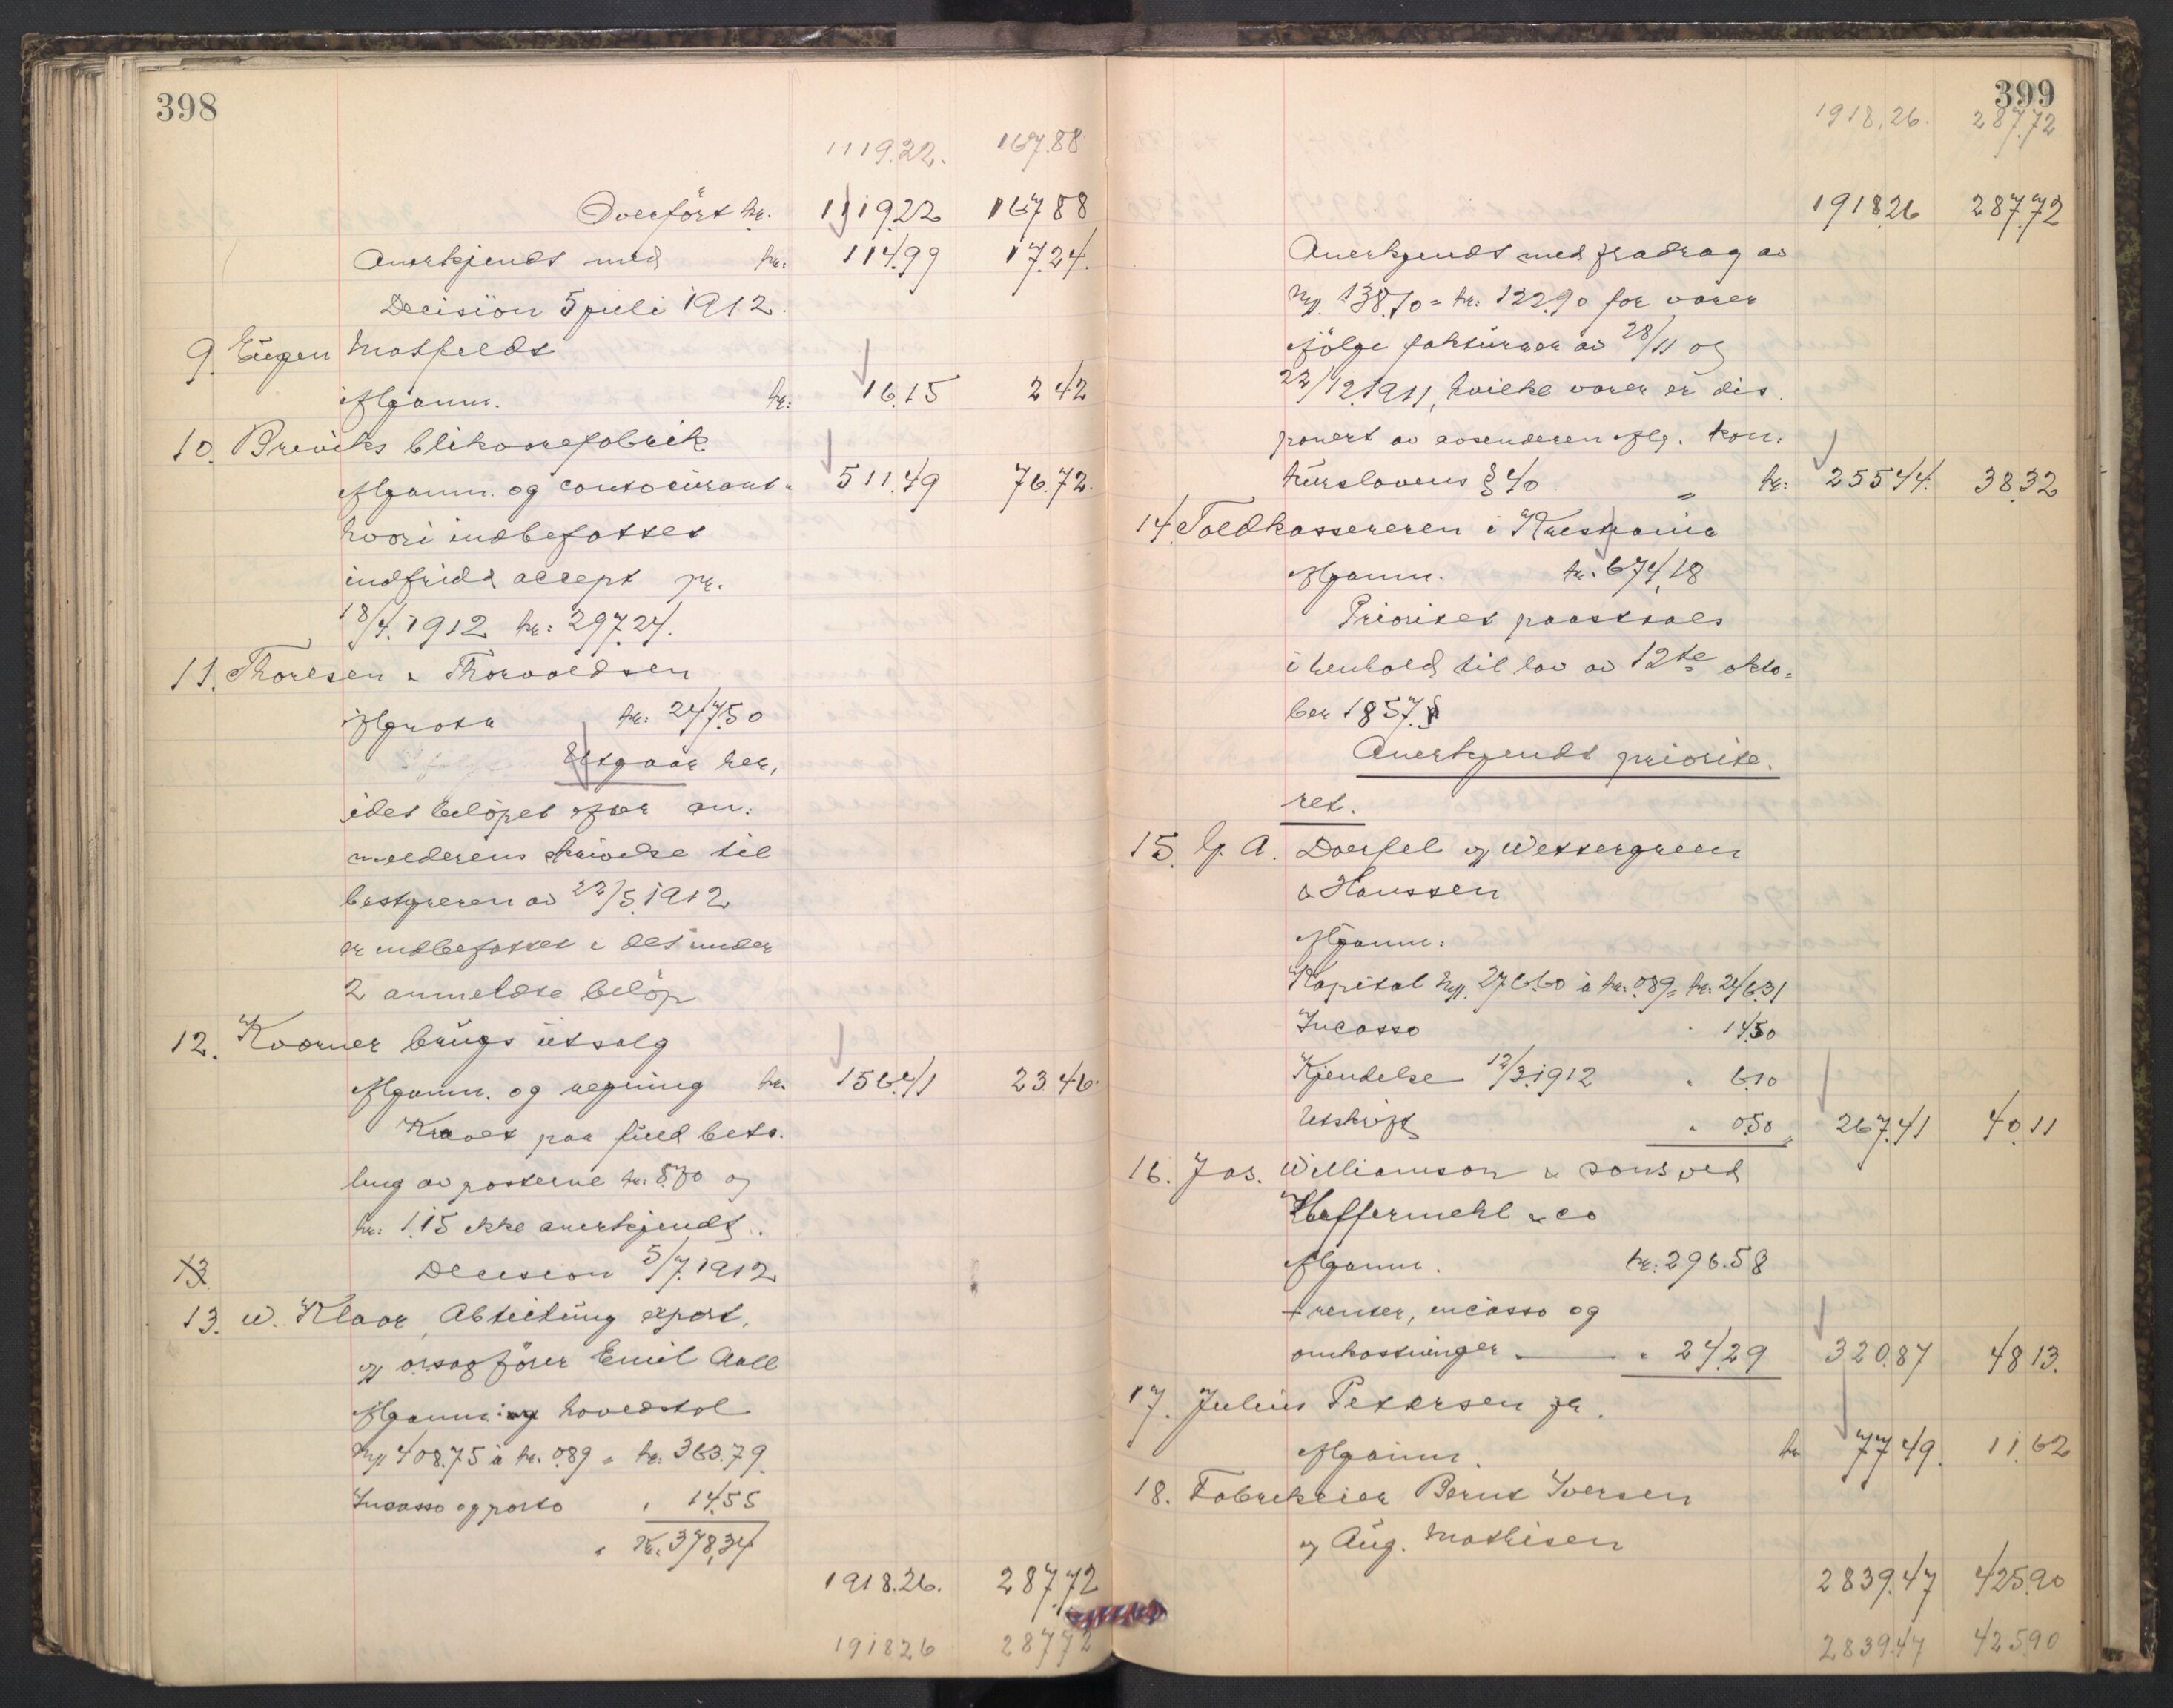 398
1119.22. 167.88
Overført kr. 1119.22 167.88
Anerkjendt med kr: 114.99 17.24.
Decision 5 juli 1912.
9. Eugen Matfeldt
iflganm. kr: 16.15 2.42
10. Breviks blikvarefabrik
iflganm. og contocurant " 511.49 76.72.
hvori indbefattet
indfridd accept pr.
18/4. 1912 kr: 297.24.
11. Thoresen & Thorvaldsen
iflgnota kr: 247.50
Utgaar her,
idet beløpet efter an:
melderens skrivelse til
bestyreren av 22/5.1912
er indbefattet i det under
2 anmeldte beløp
12. Kværner brugs utsalg
iflganm. og regning kr. 156.41 23.46.
Kravet paa fuld beta-
ling av posterne kr: 8.70 og
kr: 1.15 ikke anerkjendt.
13 Decision 5/7.1912
13. W. Klaar, Abteitung export,
v/ o.r.sagfører Emil Aall
iflganm: hovedstol
Rm 408.75 à kr. 0.89 = kr. 363.79.
Incasso og porto " 14.55
" Kr. 378,34
1918.26. 287.72
1918.26 287.72
399
1918.26. 287.72
1918.26 287.72
Anerkjendt med fradrag av
Rm. 138.10 = kr: 122.90 for varer
ifølge fakturaer av 28/11 og
22/12.1911, hvilke varer er dis-
ponert av avsenderen iflg. kon:
kurslovens § 40 " kr: 255.44. 38.32
14. Toldkassereren i Kristiania
iflganm. kr. 674,18
Prioritet paastaaes
i henhold til lov av 12te okto-
ber 1857.
Anerkjendt priorite-
ret.
15. G. A. Doerfel v/ Wettergreen
& Hanssen
iflganm:
Kapital Rm. 276.60 à kr. 0.89 = kr: 246.31
Incasso " 14.50
Kjendelse 12/3.1912 " 6.10
Utskrift " 0.50 " 267.41 40.11
16. Jas. Williamson & sons ved
Heffermehl & co
iflganm. kr: 296.58
+ renter, incasso og
omkostninger — " 24.29 320.87 48.13.
17. Julius Petersen jr.
iflganm. kr 77.49. 11.62
18. Fabrikeier Bernt Iversen
v/ Aug. Mathisen
2839.47 425.90
2839.47 425.90